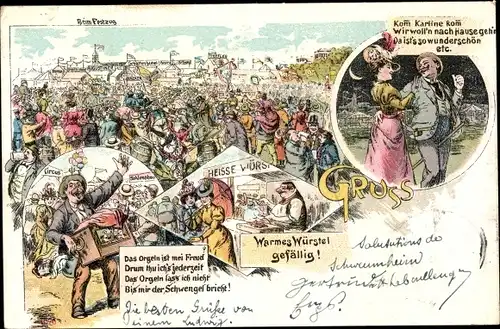 Beim Festzug
Kom Karline kom
Wir woll'n nach Hause geh'n
Da ist's so wunderschön
etc.
Circus
HEISSE WÜRST
GRUSS
Warmes Würstel
gefällig!
Das Orgeln ist mei Freud
Drum thu ich's jederzeit
Das Orgeln lass ich nicht
Bis mir der Schwengel bricht!
Salutations de
Schwennheim
Die besten Grüße von
einem Ludwig.